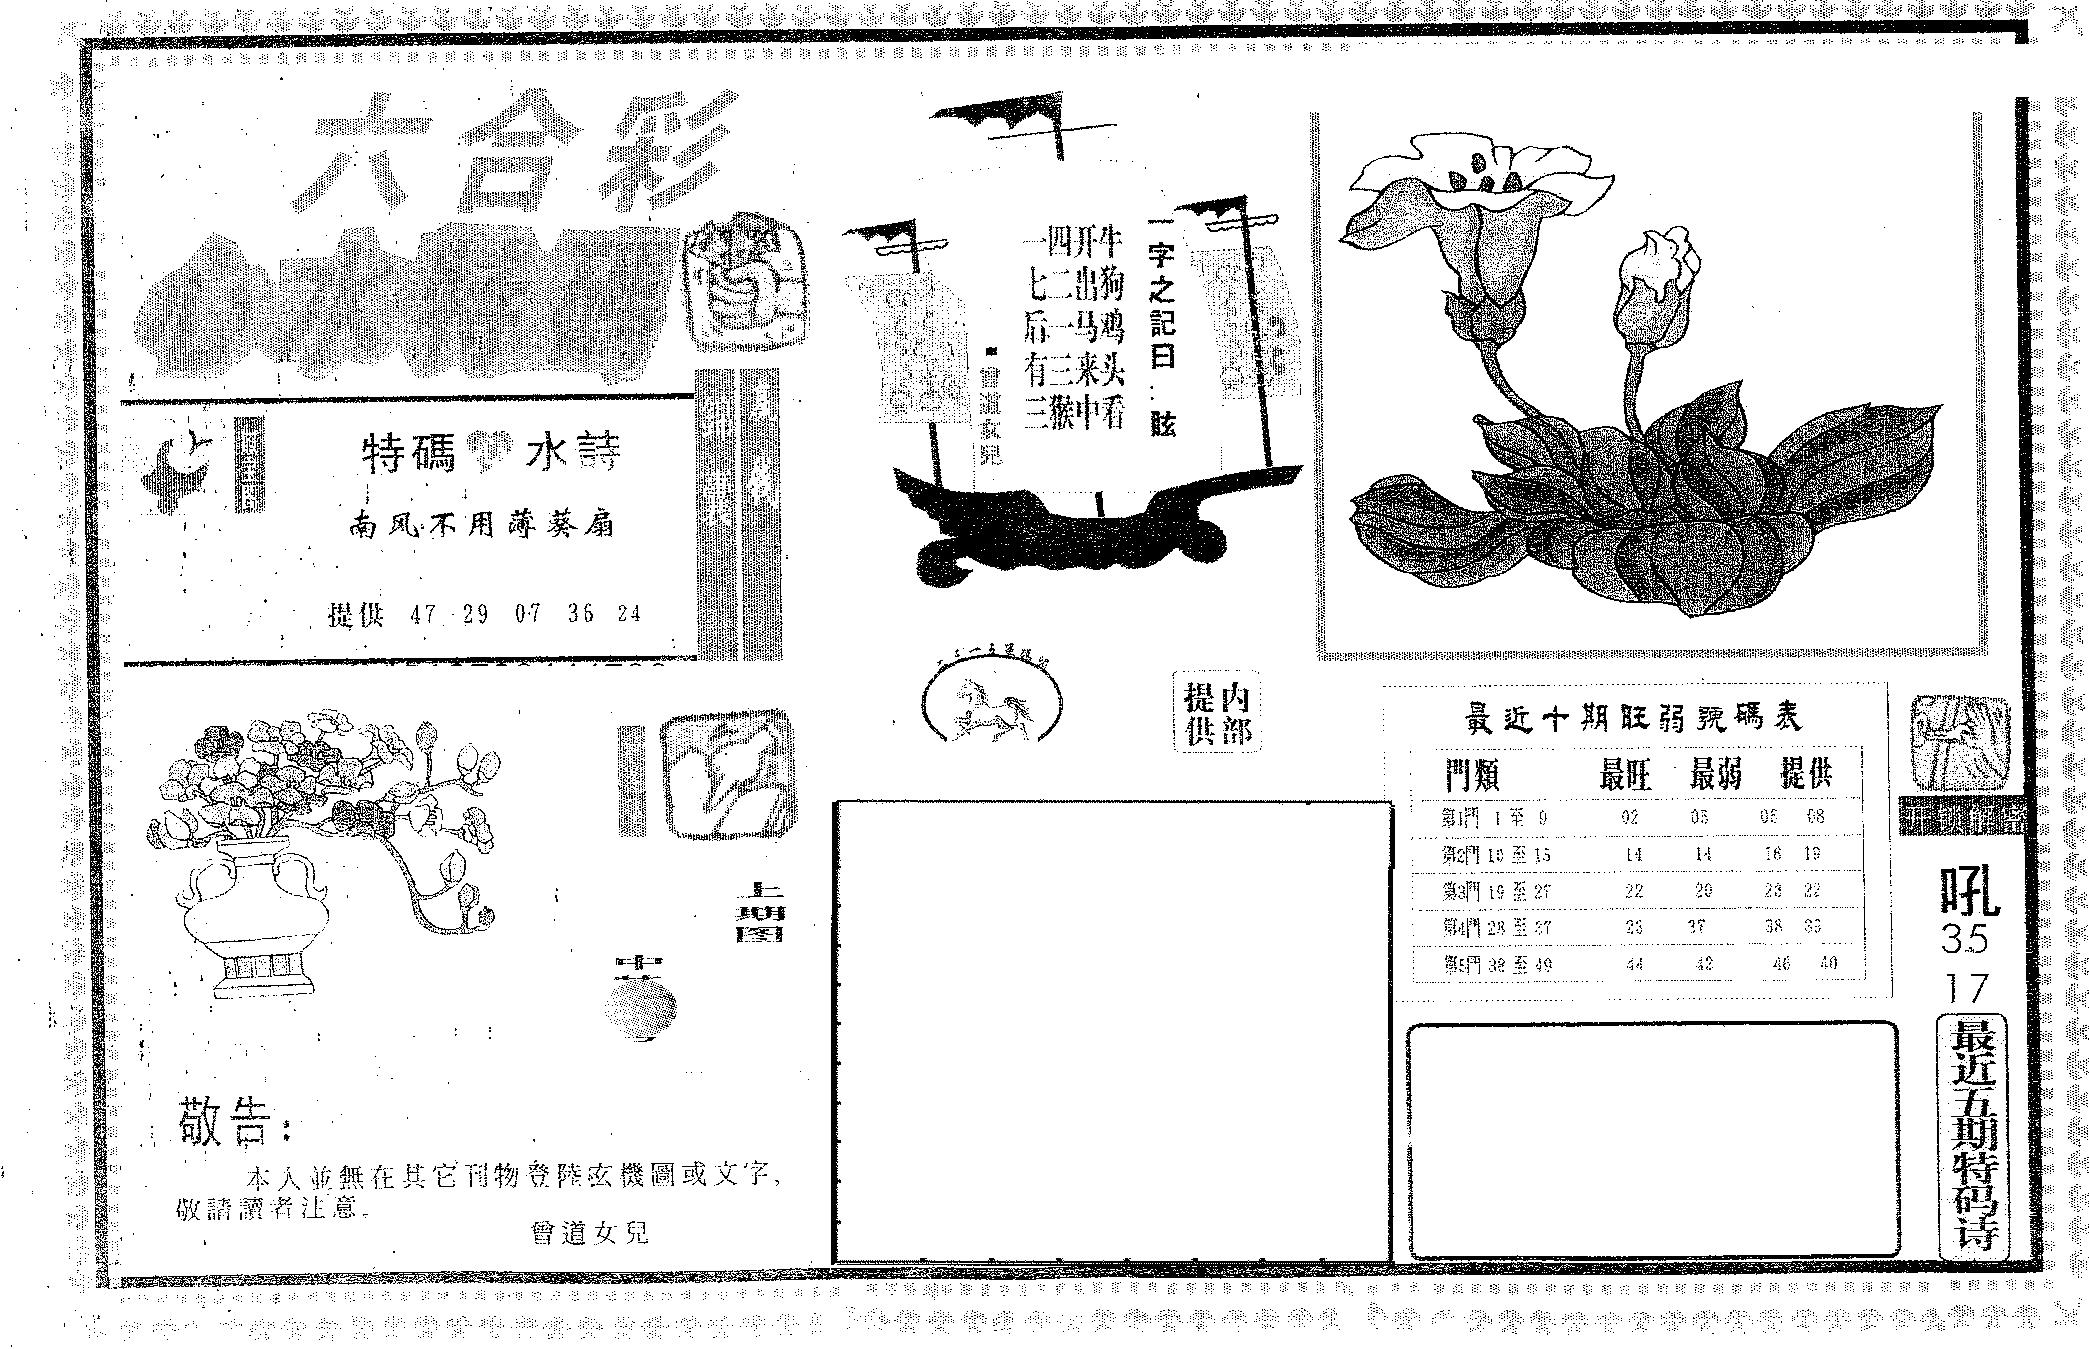 六合彩
特碼 水詩
南风不用薄葵扇
提供 47 29 07 36 24
一字之記曰：眩
牛狗鸡头看
开出马来中
四二一三猴
一七后有三
曾道女兒
内部
提供
最近十期旺弱號碼表
門類 最旺 最弱 提供
第1門 1 至 9 02 05 06 08
第2門 10 至 15 14 14 16 19
第3門 19 至 27 22 20 23 22
第4門 28 至 37 23 37 38 33
第5門 38 至 49 44 42 46 40
吼
35
17
最近五期特码诗
上期图
中
敬告：
本人並無在其它刊物登陸玄機圖或文字，
敬請讀者注意。
曾道女兒